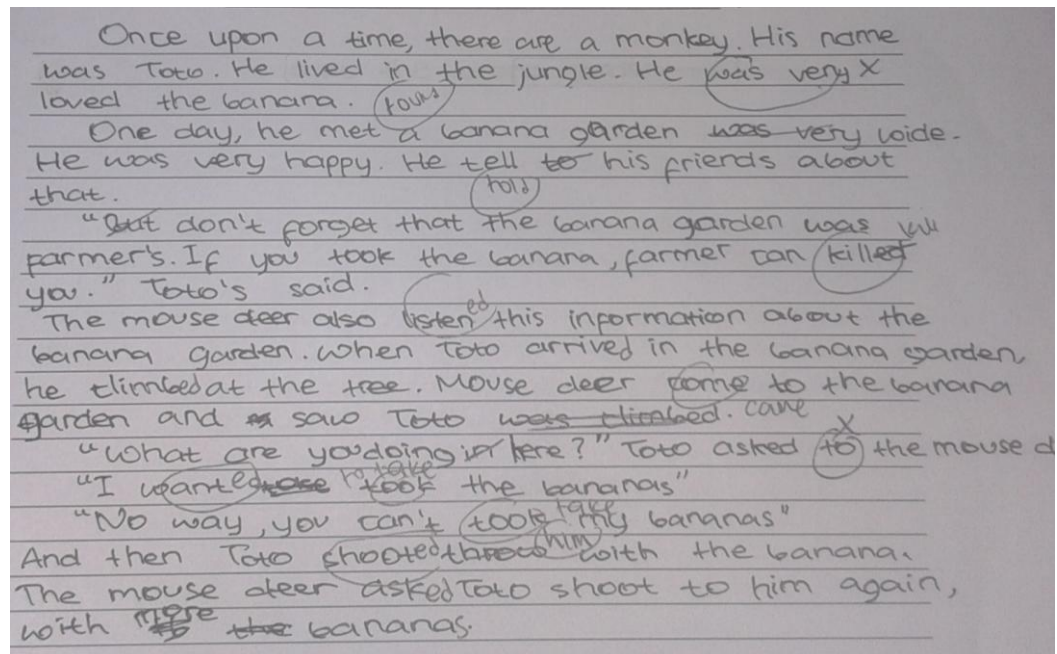 Once upon a time, there are a monkey. His name
was Toto. He lived in the jungle. He was very x
loved the banana. found
One day, he met a banana garden was very wide.
He was very happy. He tell to his friends about
that. told
"But don't forget that the banana garden was
farmer's. If you took the banana, farmer can killed kill
you." Toto's said.
The mouse deer also listened this information about the
banana garden. When Toto arrived in the banana garden,
he climbed at the tree. Mouse deer come to the banana
garden and saw Toto was climbed. came
"What are you doing in here?" Toto asked to x the mouse d
"I wanted took to take the bananas"
"No way, you can't took take my bananas"
And then Toto shooted throw him with the banana.
The mouse deer asked Toto shoot to him again,
with more the bananas.